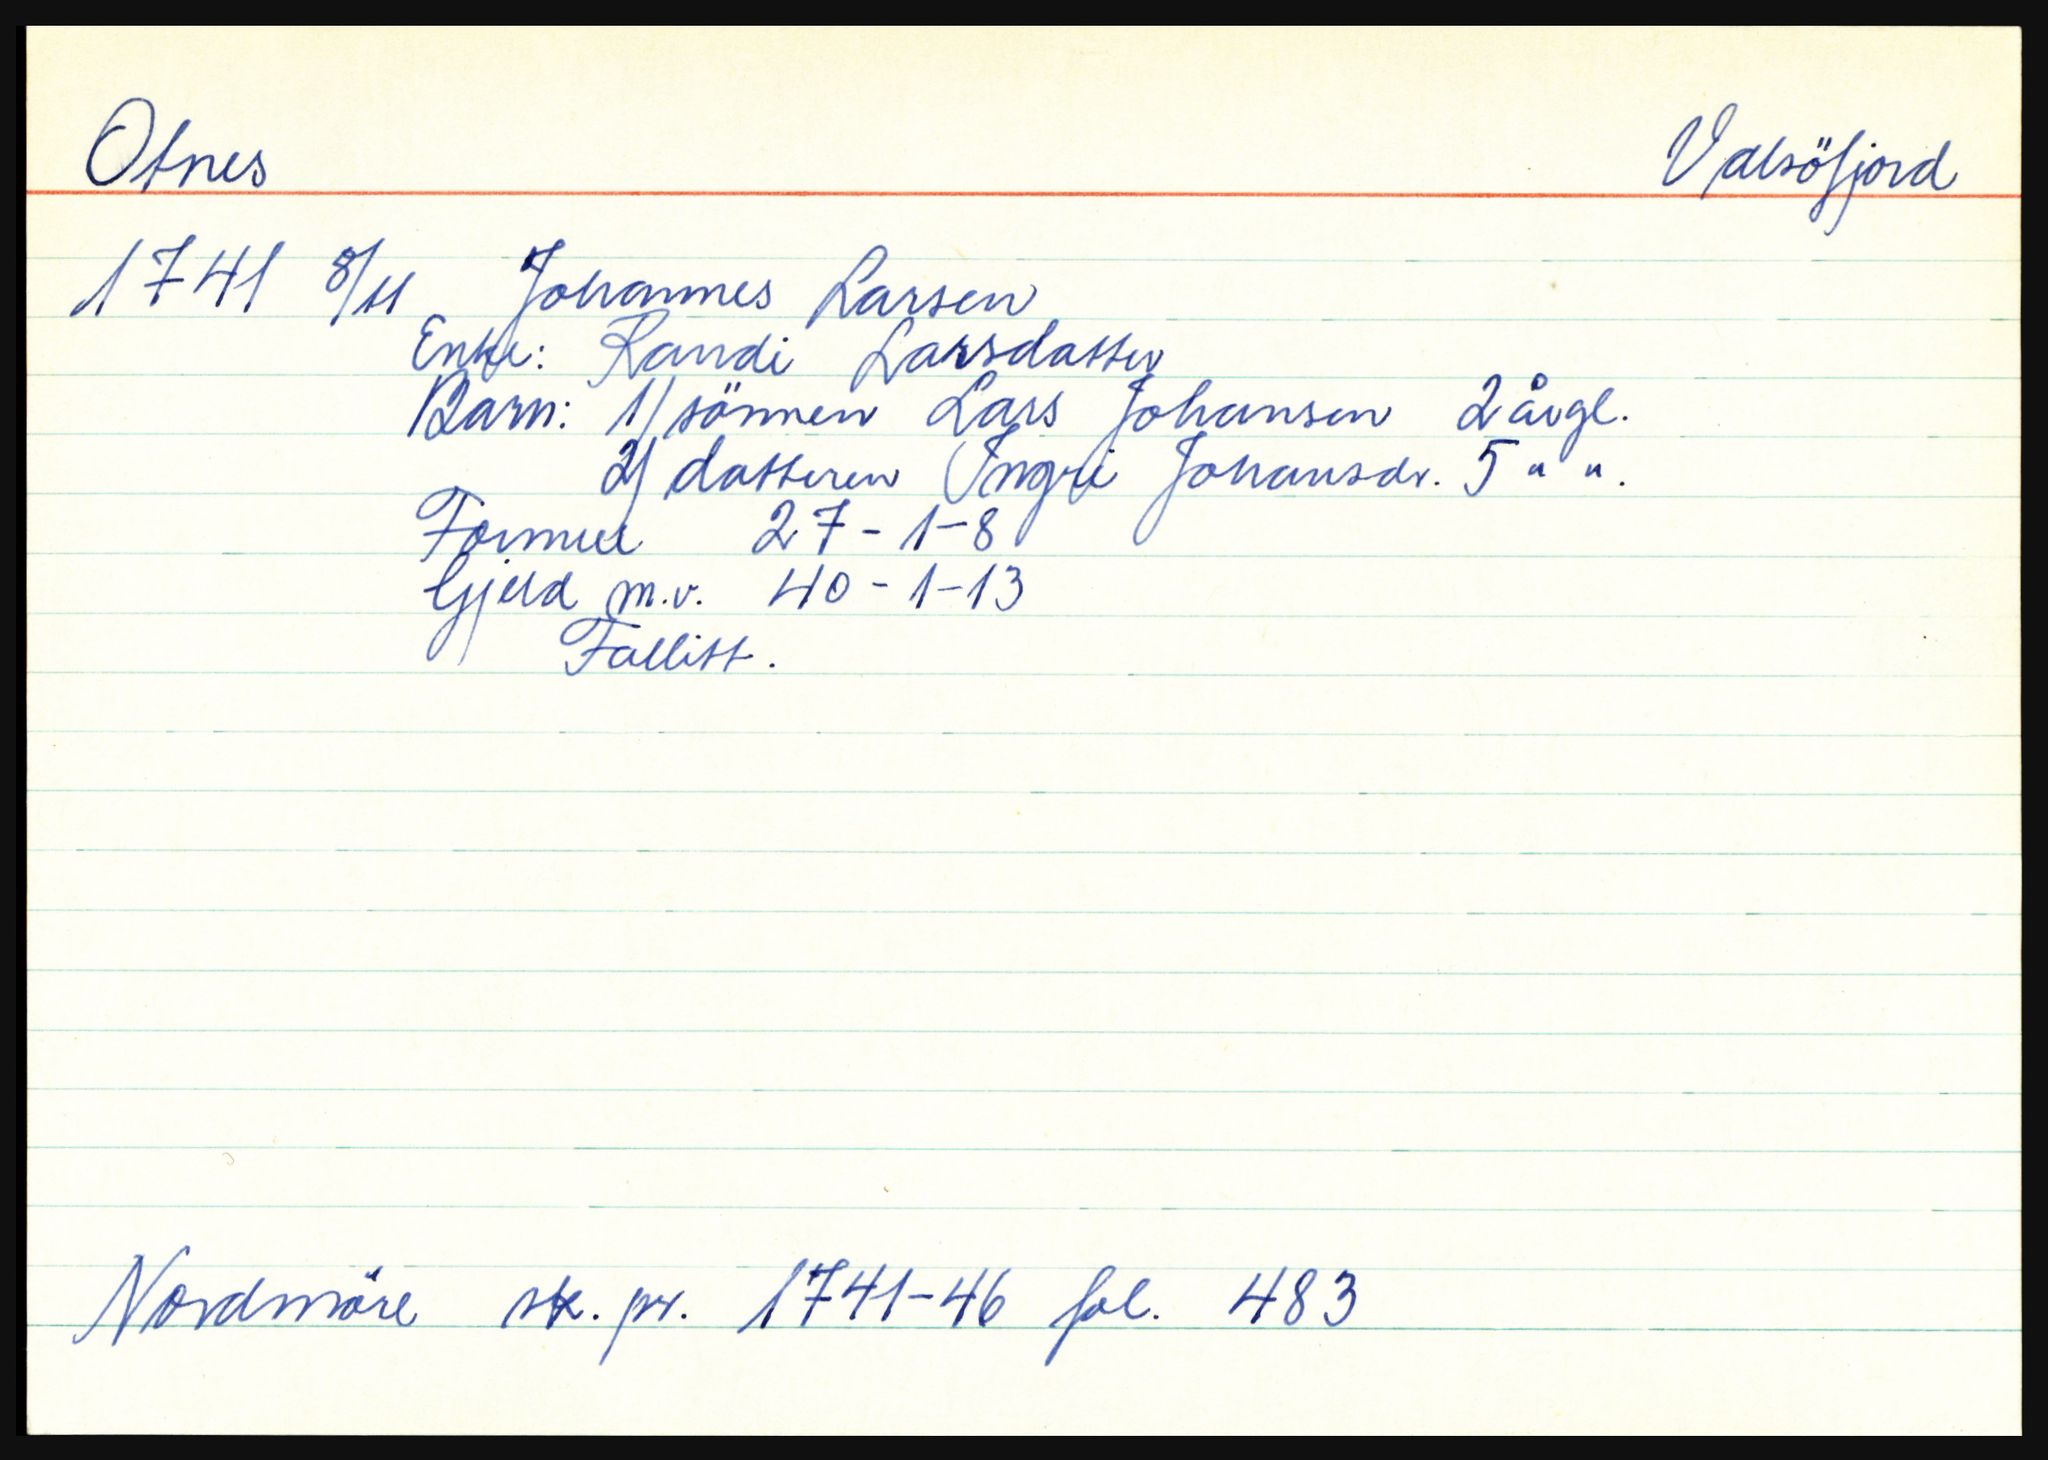 Otnes Valsöfjord
1741 8/11 Johannes Larsen
Enke: Randi Larsdatter
Barn: 1/ sönnen Lars Johansen 2 årgl.
2/ datteren Ingri Johansdr. 5 " ".
Formue 27-1-8
Gjeld m.v. 40-1-13
Fallitt.
Nordmöre sk. pr. 1741-46 fol. 483